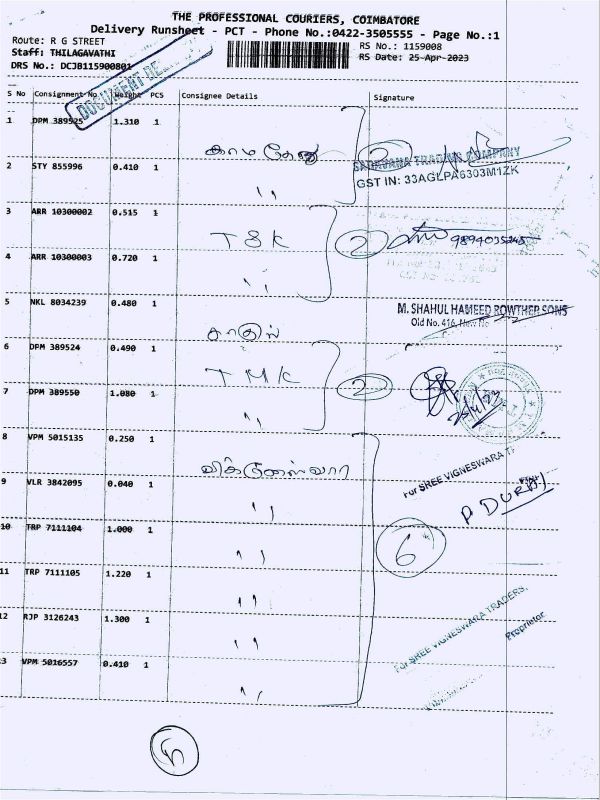 THE PROFESSIONAL COURIERS, COIMBATORE
Delivery Runsheet - PCT - Phone No.:0422-3505555 - Page No.:1
Route: R G STREET
RS No.: 1159008
Staff: THILAGAVATHI
RS Date: 25-Apr-2023
DRS No.: DCJB115900801
DOCUMENT DE
S No Consignment No. Weight PCS Consignee Details Signature
1 DPM 389525 1.310 1
SADHAYANA TRADING COMPANY
GST IN: 33AGLPA6303M1ZK
2 STY 855996 0.410 1 ,, 2
3 ARR 10300002 0.515 1 T S K 2 9894035245
4 ARR 10300003 0.720 1 ,,
5 NKL 8034239 0.480 1 காதர்
M. SHAHUL HAMEED ROWTHER SONS
Old No. 416, New No
6 DPM 389524 0.490 1 T M K 2
7 DPM 389550 1.080 1 ,, 25/4/23
8 VPM 5015135 0.250 1
For SREE VIGNESWARA T
9 VLR 3842095 0.040 1 ,, P DURAI
10 TRP 7111104 1.000 1 ,, 6
11 TRP 7111105 1.220 1 ,,
12 RJP 3126243 1.300 1 ,,
For SREE VIGNESWARA TRADERS,
Proprietor
13 VPM 5016557 0.410 1 ,,